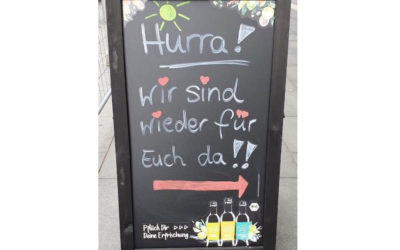 Hurra!
Wir sind
wieder für
Euch da!!
Pflück Dir >>>
Deine Erfrischung